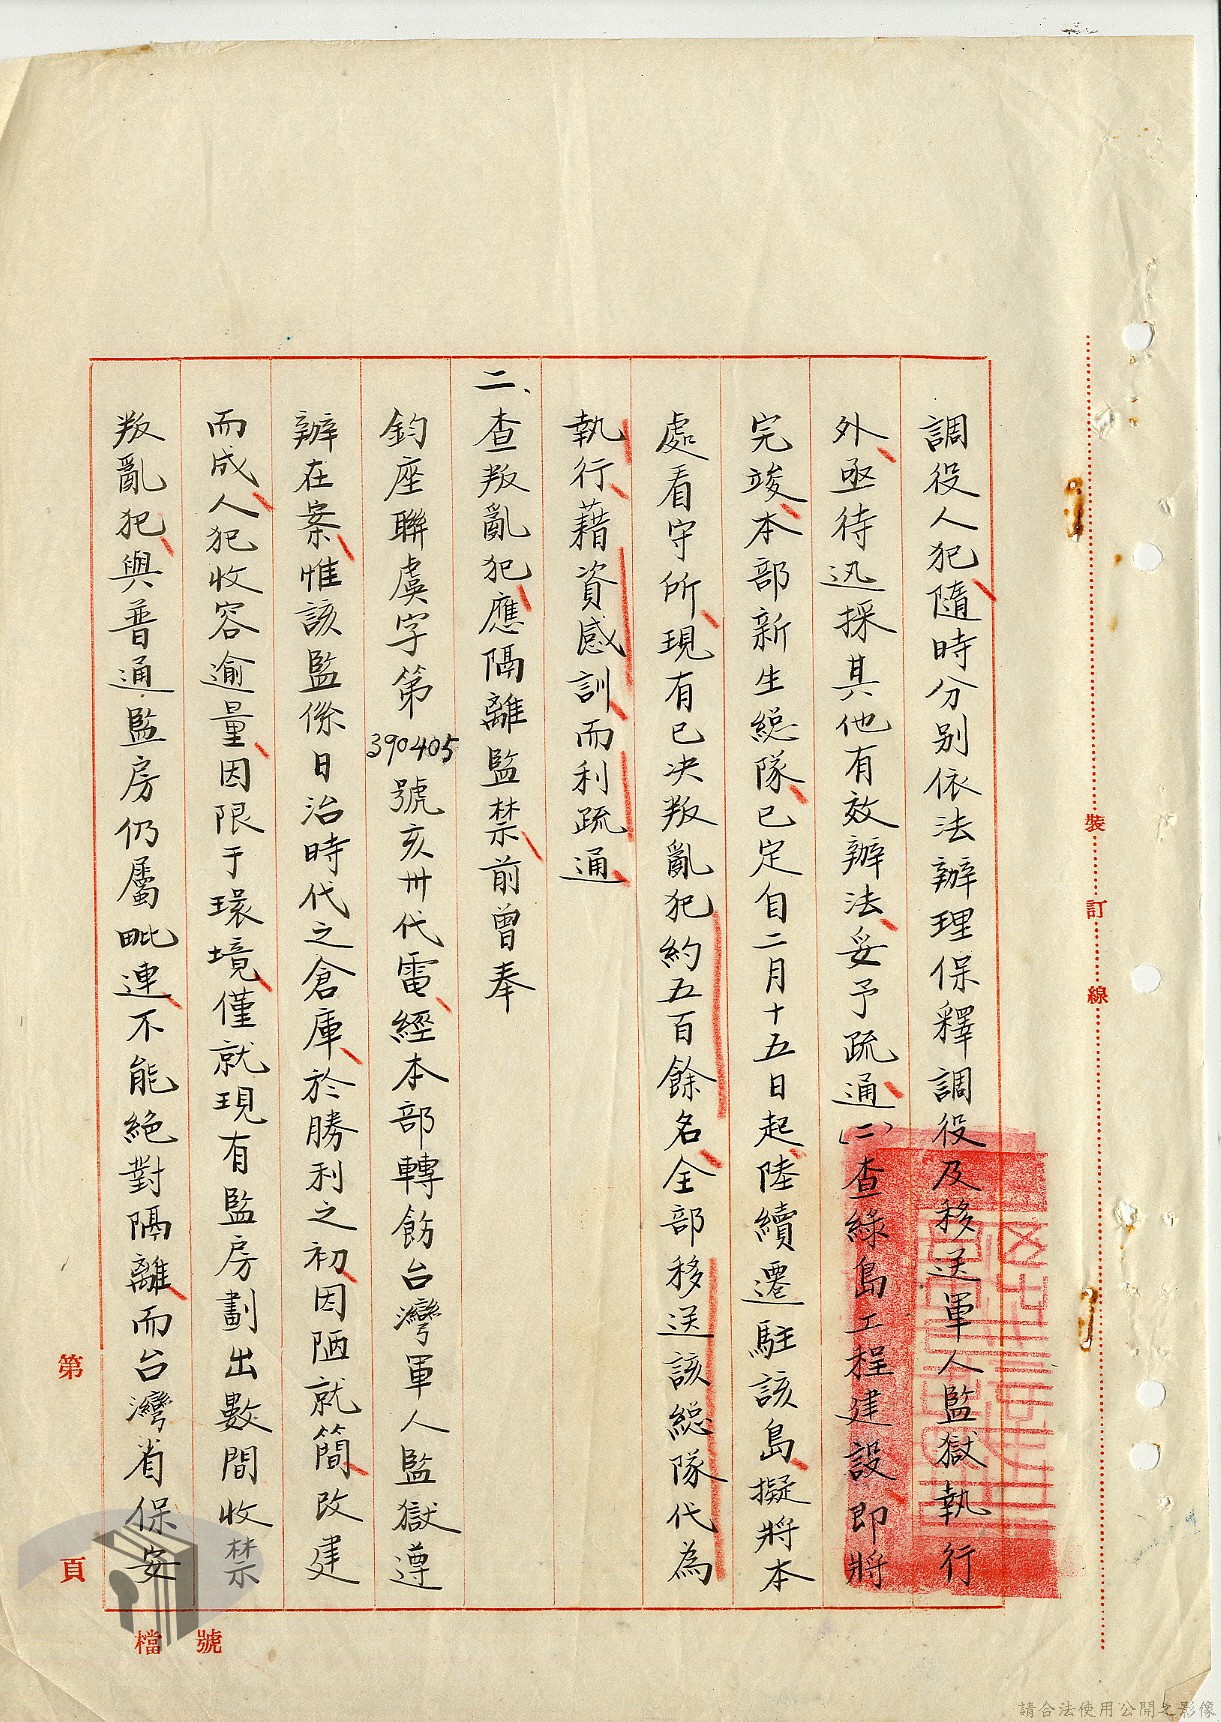 調役人犯、隨時分別依法辦理保釋調役及移送軍人監獄執行
外、亟待迅採其他有效辦法、妥予疏通、(二)查綠島工程建設、即將
完竣、本部新生総隊、已定自二月十五日起、陸續遷駐該島、擬將本
處看守所、現有已決叛亂犯約五百餘名、全部移送該総隊代為
執行、藉資感訓、而利疏通、
二、查叛亂犯、應隔離監禁、前曾奉
鈞座聯虞字第390405號亥卅代電、經本部轉飭台灣軍人監獄遵
辦在案、惟該監係日治時代之倉庫、於勝利之初、因陋就簡、改建
而成、人犯收容逾量、因限于環境、僅就現有監房劃出數間收禁
叛亂犯、與普通監房仍屬毗連、不能絕對隔離、而台灣省保安
裝
訂
線
第
頁
檔 號
請合法使用公開之影像